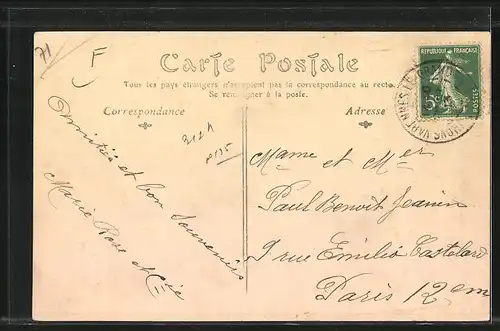 71
F
Carte Postale
Tous les pays étrangers n'acceptent pas la correspondance au recto.
Se renseigner à la poste.
Correspondance
Adresse
RÉPUBLIQUE FRANÇAISE
5c
POSTES
Amitiés et bon Souvenirs
Marie Rose et Cie
Mame et Mer
Paul Benoit Jeanin
9 rue Emilio Castelard
Paris 12em